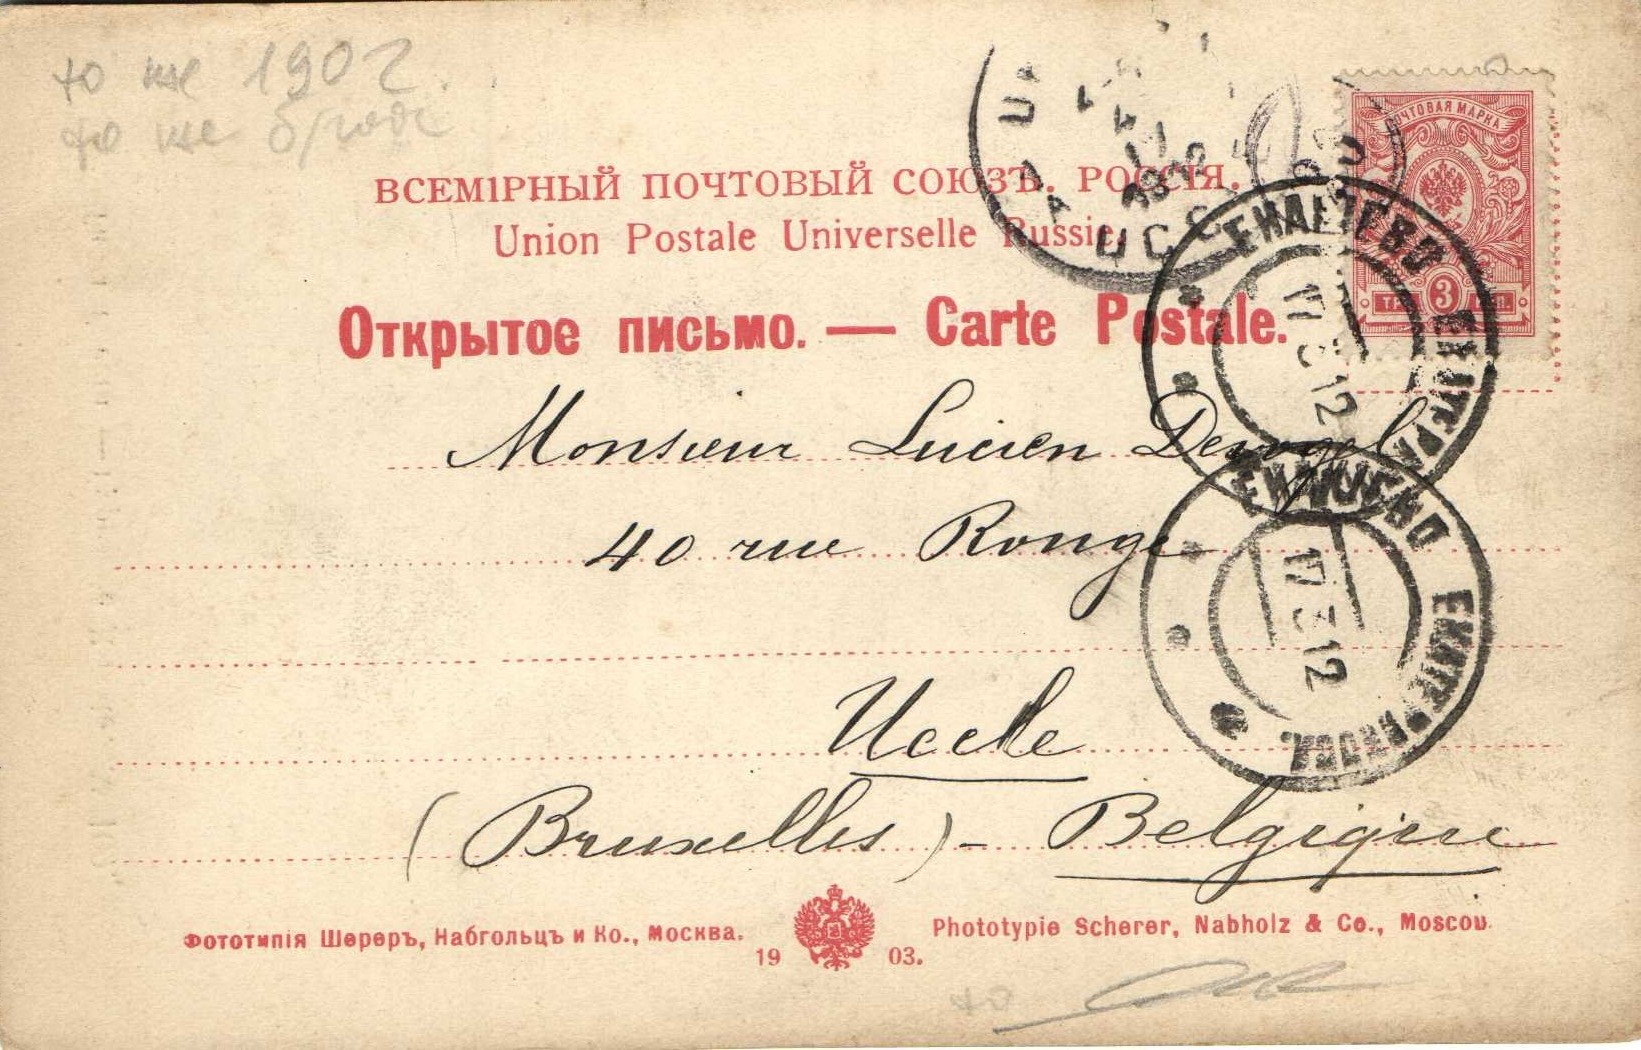 то же 1902.
то же б/года
ПОЧТОВАЯ МАРКА
ВСЕМІРНЫЙ ПОЧТОВЫЙ СОЮЗЪ. РОССІЯ.
Union Postale Universelle Russie.
3
Открытое письмо. — Carte Postale.
17 3 12
Monsieur Lucien
40 rue Rouge
17 3 12
Uccle
(Bruxelles) - Belgique
Фототипія Шереръ, Набгольцъ и Ко., Москва.
1903.
Phototypie Scherer, Nabholz & Co., Moscou.